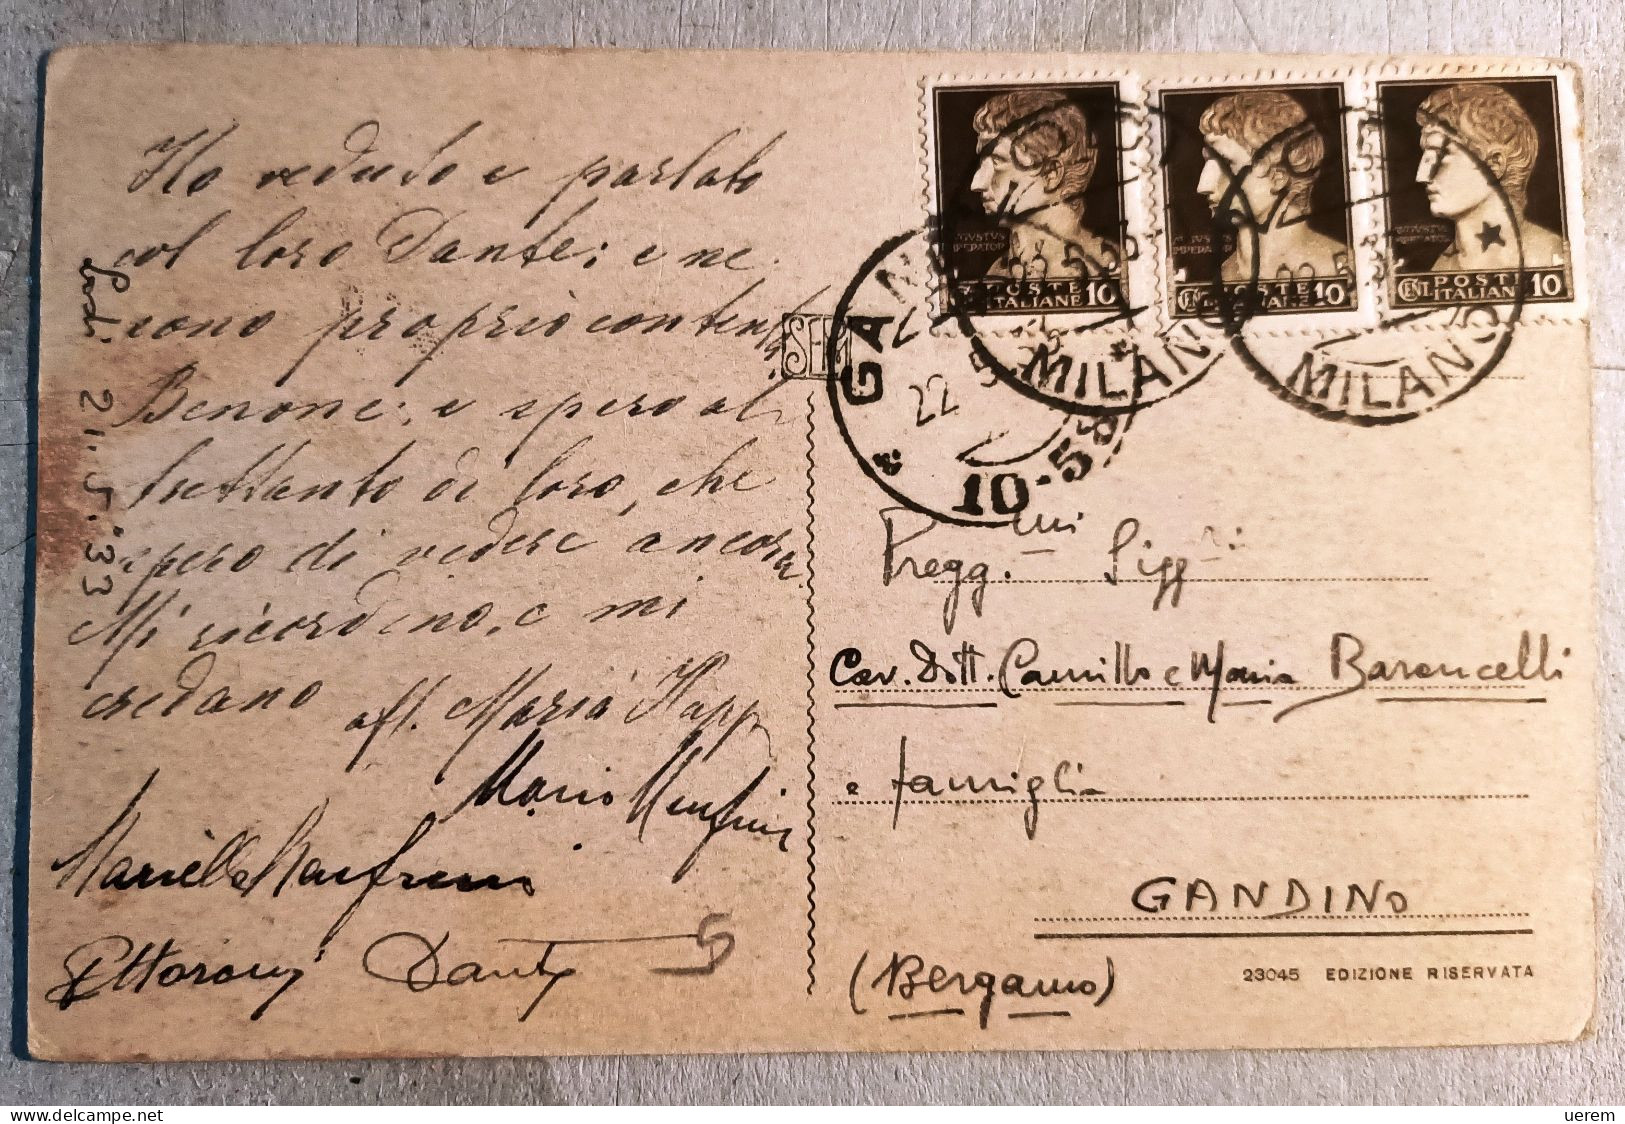 Ho veduto e parlato
col loro Dante; e ne
sono proprio contenta
Benone; e spero al
trettanto di loro, che
spero di vedere ancora
Mi ricordino, e mi
credano
aff. Maria
Mario
Dante
Lodi 21.5.33
SEM
AVGVSTVS IMPERATOR
CENT. POSTE ITALIANE 10
AVGVSTVS IMPERATOR
CENT. POSTE ITALIANE 10
AVGVSTVS IMPERATOR
CENT. POSTE ITALIANE 10
MILANO
MILANO
GANDINO
22 5
10-58
Pregg.mi Sigg.ri
Cav. Dott. Camillo e Maria Baroncelli
e famiglia
GANDINO
(Bergamo)
23045 EDIZIONE RISERVATA
delcampe.net
uerem